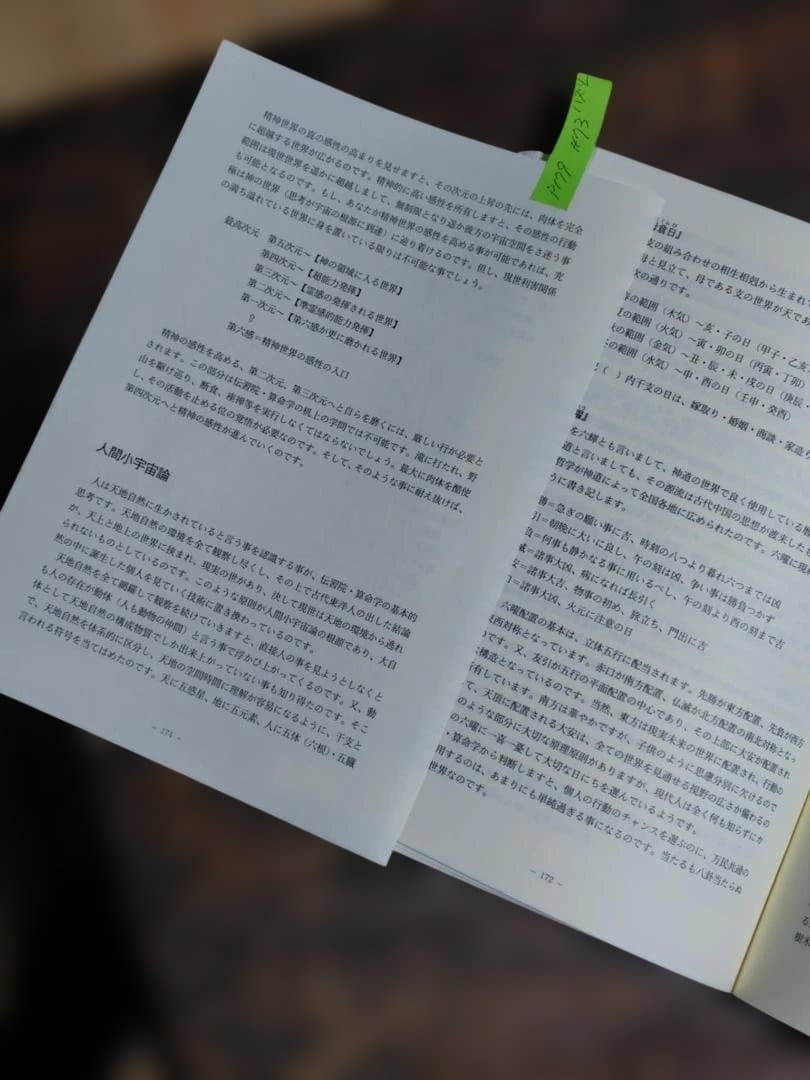 精神世界の真の感性の高まりを見せますと、その次元の上昇の先には、肉体を完全
に超越する世界が広がるのです。精神的に高い感性を所有しますと、その感性の行動
範囲は現世世界を遥かに超越しまして、無制限となり遥か彼方の宇宙空間をさ迷う事
も可能となるのです。もし、あなたが精神世界の感性を高める事が可能であれば、究
極は神の世界(思考が宇宙の根源に到達)に辿り着けるのです。但し、現世利害関係
の満ち溢れている世界に身を置いている限りは不可能な事でしょう。
最高次元 第五次元~【神の領域に入る世界】
第四次元~【超能力発揮】
第三次元~【霊感の発揮される世界】
第二次元~【準霊感的能力発揮】
第一次元~【第六感が更に磨かれる世界】
⇧
第六感=精神世界の感性の入口
精神の感性を高める、第二次元、第三次元へと自らを磨くには、厳しい行が必要と
されます。この部分は伝習院・算命学の机上の学問では不可能です。滝に打たれ、野
山を駆け巡り、断食、座禅等を実行しなくてはならないでしょう。最大に肉体を酷使
し、その活動を止める位の覚悟が必要なのです。そして、そのような事に耐え抜けば、
第四次元へと精神の感性が進んでいくのです。
人間小宇宙論
人は天地自然に生かされていると言う事を認識する事が、伝習院・算命学の基本的
思考です。天地自然の環境を全て観察し尽くし、その上で古代東洋人の出した結論
が、天上と地上の世界に挟まれ、現実の世があり、決して現世は天地の環境から逃れ
られないものとしているのです。このような原則が人間小宇宙論の根源であり、大自
然の中に誕生した個人を見ていく技術に置き換わっているのです。
天地自然を全て網羅して観察を続けていきますと、直接人の事を見ようとしなくと
も人の存在が動体(人も動物の仲間)と言う事で浮かび上がってくるのです。又、動
体として天地自然の構成物質でしか出来上がっていない事も知り得たのです。そこ
で、天地自然を体系的に区分し、天地の空間時間に理解が容易になるように、干支と
言われる符号を当てはめたのです。天に五惑星、地に五元素、人に五体(六根)・五臓
- 171 -
日』
支の組み合わせの相生相剋から生まれ
母と見立て、母である支の世界が天であ
次の通りです。
の範囲(木気)~亥・子の日(甲子・乙亥
の範囲(火気)~寅・卯の日(丙寅・丁卯
の範囲(金気)~丑・辰・未・戌の日(庚辰・
の範囲(水気)~申・酉の日(壬申・癸酉)
( )内干支の日は、嫁取り・婚姻・商談・家造り
』
を六輝とも言いまして、神道の世界で良く使用している
道と言いましても、その源流は古代中国の思想が渡来した
哲学が神道によって全国各地に広められたのです。六曜に
うに書き記します。
勝=急ぎの願い事に吉、時刻の八つより暮れ六つまでは凶
引=朝晩に大いに良し、午の刻は凶、争い事は勝負つかず
負=何事も静かなる事に用いるべし、午の刻より酉の刻まで吉
滅=諸事大凶、病になれば長引く
安=諸事大吉、物事の初め、旅立ち、門出に吉
口=諸事大凶、火元に注意の日
六曜配置の基本は、立体五行に配当されます。先勝が東方配置、先負が西方
西対称となっています。赤口が南方配置、仏滅が北方配置の南北対称となっ
のです。又、友引が五行の平面配置の中心であり、その上部に大安が配置され
構造となっているのです。当然、東方は現実未来の世界に配置され、行動の
所有しています。南方は華やかですが、子供のように思慮分別に欠けるので
て、天頂に配置される大安は、全ての世界を見通せる視野の広さが備わるの
のような部分に大切な原理原則がありますが、現代人は全く何も知らずにカ
の六曜に一喜一憂して大切な日にちを選んでいるようです。
・算命学から判断しますと、個人の行動のチャンスを選ぶのに、万民共通の
用するのは、あまりにも単純過ぎる事になるのです。当たるも八卦当たらぬ
世界なのです。
- 172 -